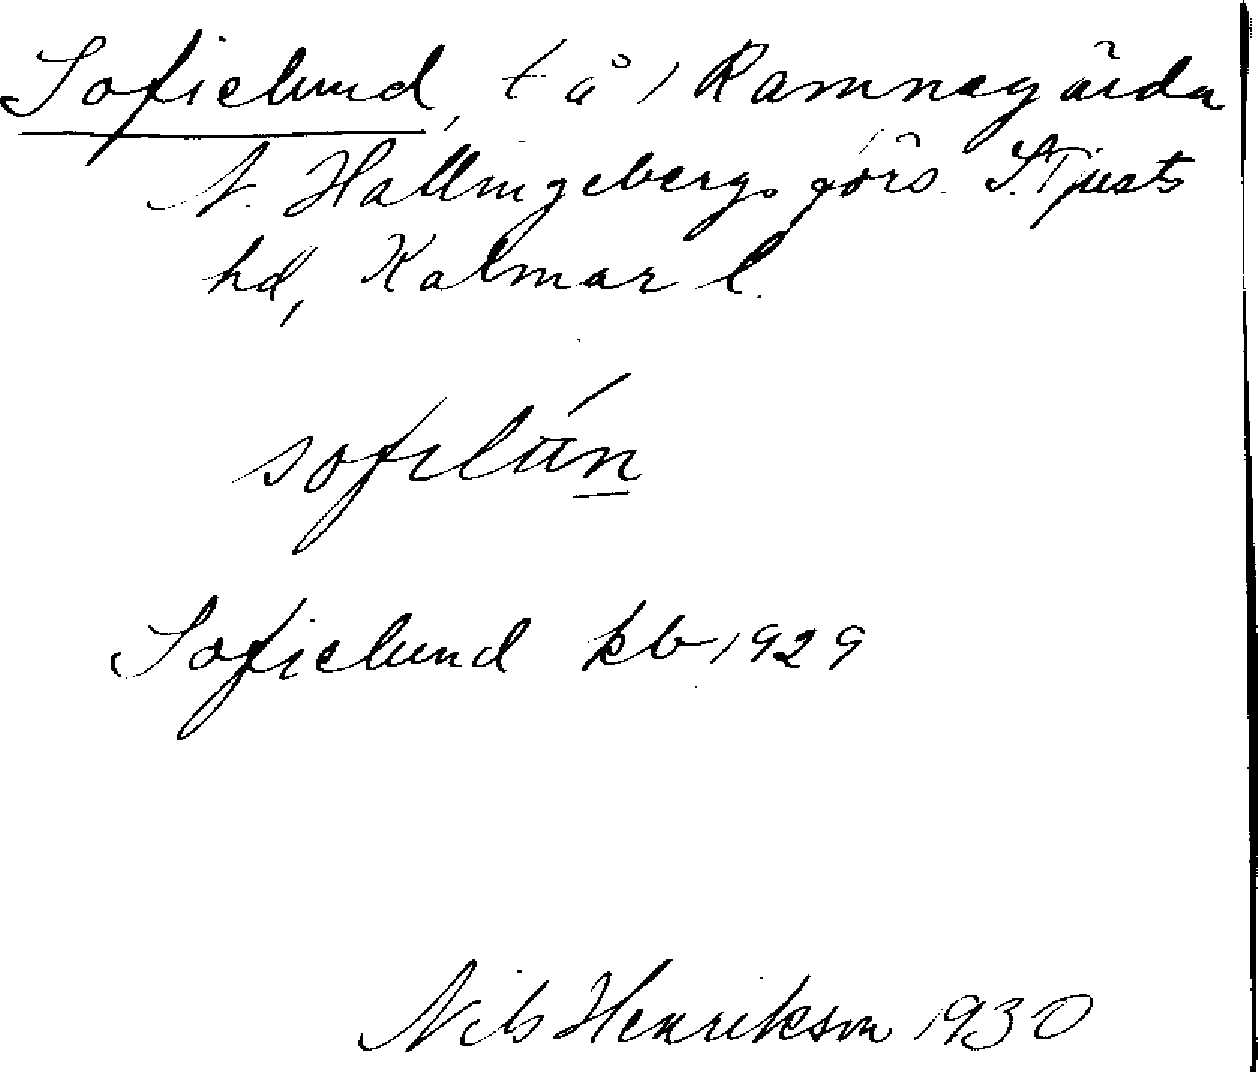 Sofielund, t å 1 Ramnagärda
N. Hallingebergs förs. S. Tjusts
hd, Kalmar l.
sofilún
Sofielund kb 1929
Nils Henrikson 1930